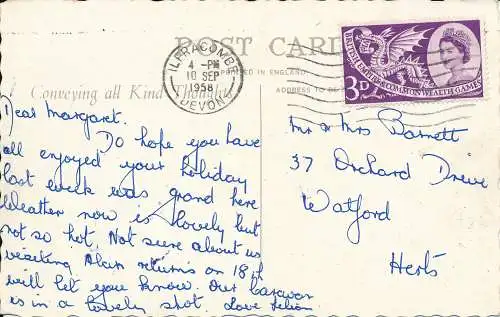 POST CARD
PRINTED IN ENGLAND
ILFRACOMBE
4 - PM
10 SEP
1958
DEVON
3D
BRITISH EMPIRE & COMMONWEALTH GAMES
Conveying all Kind Thoughts
ADDRESS TO BE
Dear Margaret.
Do hope you have
all enjoyed your holiday
last week was grand here
Weather now is lovely but
not so hot. Not sure about us
visiting Alan returns on 18th
will let you know. Our caravan
is in a lovely spot. Love
Mr & Mrs Barnett
37 Orchard Drive
Watford
Herts